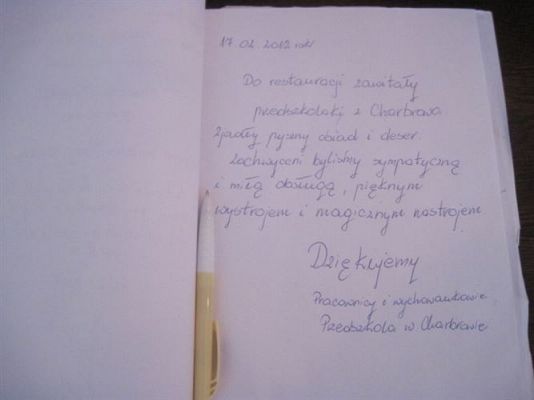 17.02.2012 rok
Do restauracji zawitały
przedszkolaki z Charbrowa
Zjadły pyszny obiad i deser.
Zachwyceni byliśmy sympatyczną
i miłą obsługą, pięknym
wystrojem i magicznym nastrojem
Dziękujemy
Pracownicy i wychowankowie
Przedszkola w Charbrowie